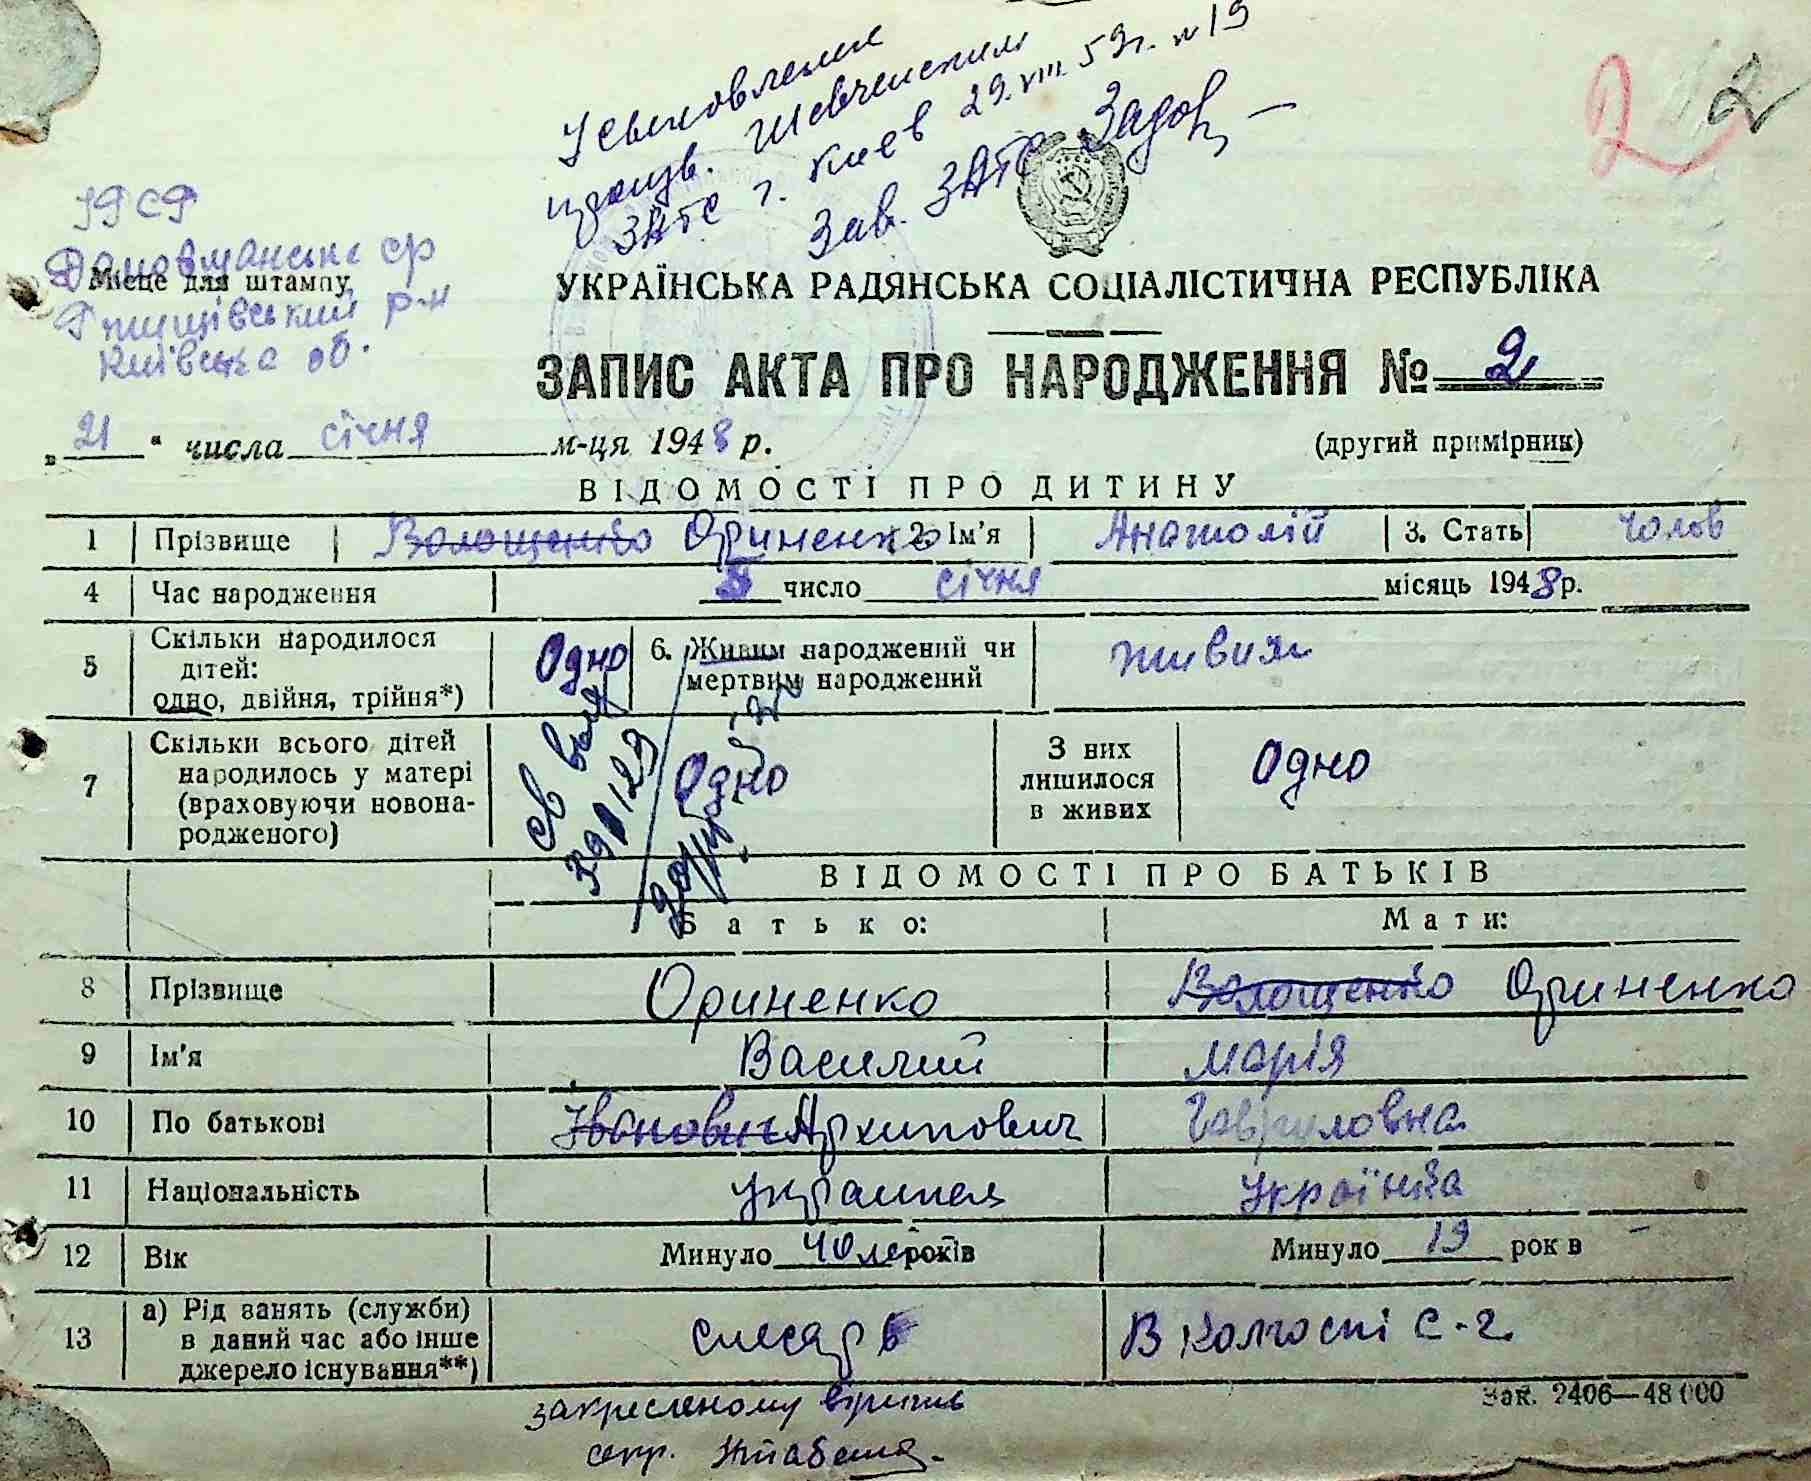 Усыновление
произв. Шевченским
ЗАГС г. Киев 29.VIII.59г. N19
Зав. ЗАГС
2 2
УРСР
ср
Місце для штампу
р-н
Київська об.
УКРАЇНСЬКА РАДЯНСЬКА СОЦІАЛІСТИЧНА РЕСПУБЛІКА
ЗАПИС АКТА ПРО НАРОДЖЕННЯ № 2
„21“ числа січня м-ця 1948 р. (другий примірник)
ВІДОМОСТІ ПРО ДИТИНУ
1 Прізвище Волощенко Ориненко 2. Ім'я Анатолій 3. Стать чолов
4 Час народження 5 число січня місяць 1948 р.
5 Скільки народилося дітей: одно, двійня, трійня*) Одно 6. Живим народжений чи мертвим народжений живим
7 Скільки всього дітей народилось у матері (враховуючи новонародженого) Одно З них лишилося в живих Одно
ВІДОМОСТІ ПРО БАТЬКІВ
Батько: Мати:
8 Прізвище Ориненко Волощенко Ориненко
9 Ім'я Василий Марія
10 По батькові Іванович Архипович Гавриловна
11 Національність украинец Українка
12 Вік Минуло 40 лет років Минуло 19 рок в
13 а) Рід занять (служби) в даний час або інше джерело існування**) слесарь В колгоспі с-г.
Зак. 2406—48 000
закресленому вірить
секр.